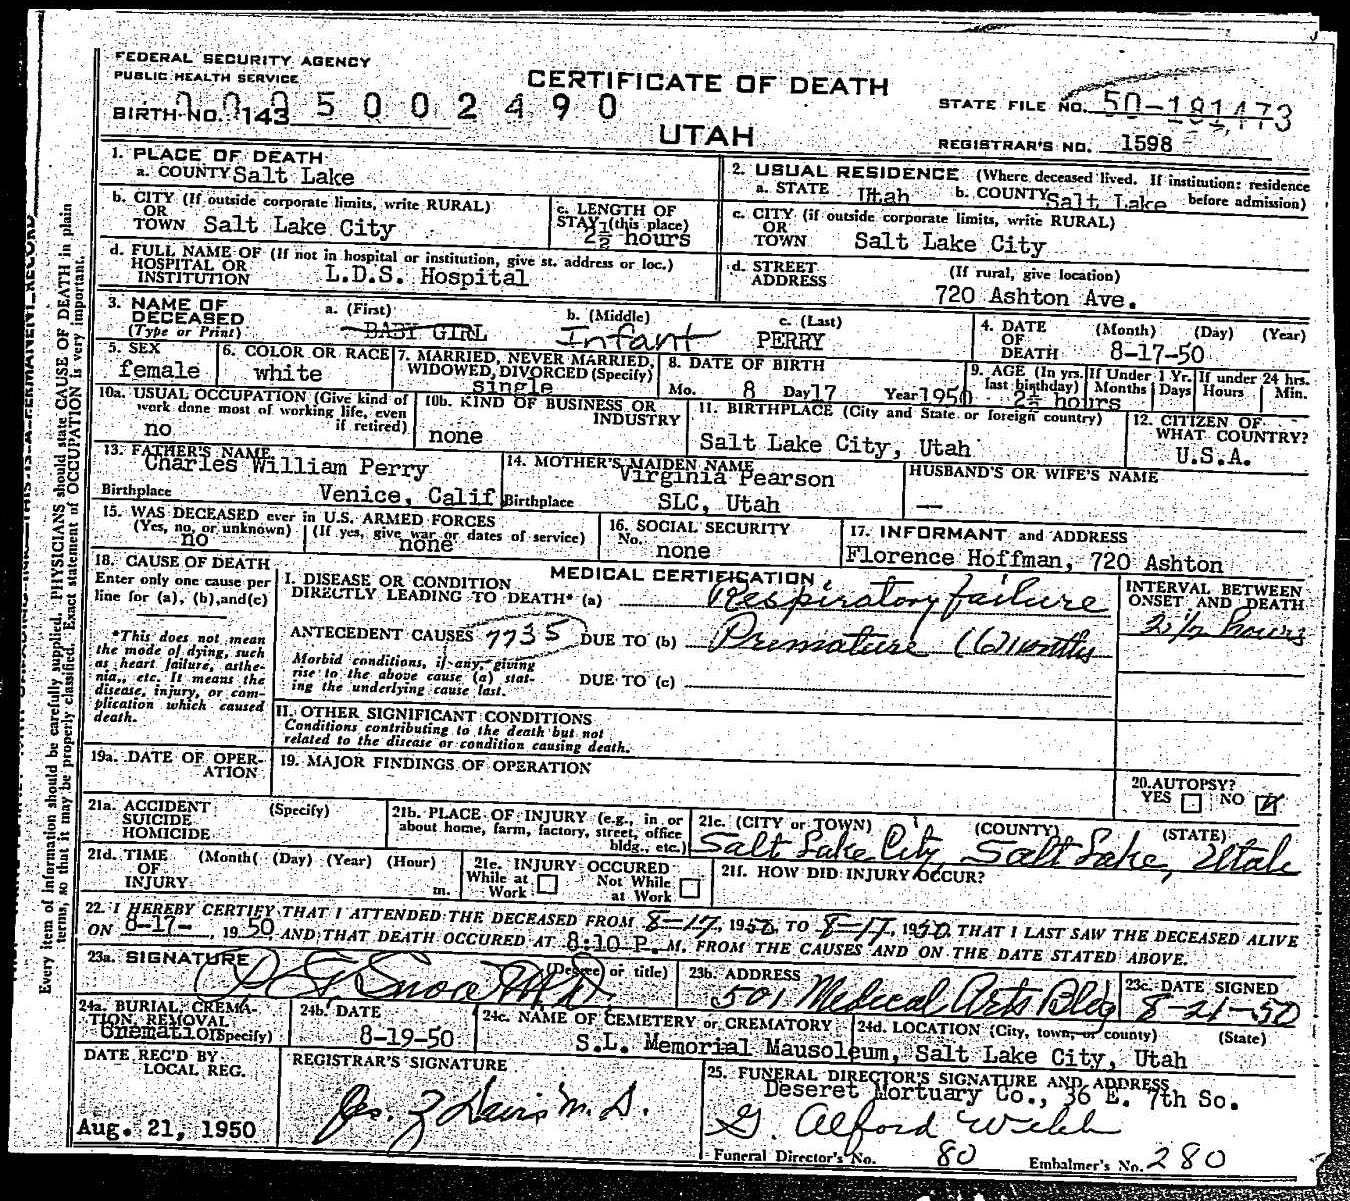 FEDERAL SECURITY AGENCY
PUBLIC HEALTH SERVICE
CERTIFICATE OF DEATH
UTAH
BIRTH NO. 143 5002490
STATE FILE NO. 50-181473
REGISTRAR'S NO. 1598
1. PLACE OF DEATH
a. COUNTY Salt Lake
b. CITY (If outside corporate limits, write RURAL)
OR
TOWN Salt Lake City
c. LENGTH OF
STAY (this place)
2½ hours
d. FULL NAME OF (If not in hospital or institution, give st. address or loc.)
HOSPITAL OR
INSTITUTION L.D.S. Hospital
2. USUAL RESIDENCE (Where deceased lived. If institution: residence
a. STATE Utah b. COUNTY Salt Lake before admission)
c. CITY (if outside corporate limits, write RURAL)
OR
TOWN Salt Lake City
d. STREET (If rural, give location)
ADDRESS 720 Ashton Ave.
3. NAME OF
DECEASED
(Type or Print)
a. (First) BABY GIRL
b. (Middle) Infant
c. (Last) PERRY
4. DATE (Month) (Day) (Year)
OF
DEATH 8-17-50
5. SEX
female
6. COLOR OR RACE
white
7. MARRIED, NEVER MARRIED,
WIDOWED, DIVORCED (Specify)
single
8. DATE OF BIRTH
Mo. 8 Day 17 Year 1950
9. AGE (In yrs. If Under 1 Yr. If under 24 hrs.
last birthday) Months Days Hours Min.
2½ hours
10a. USUAL OCCUPATION (Give kind of
work done most of working life, even
if retired)
no
10b. KIND OF BUSINESS OR
INDUSTRY
none
11. BIRTHPLACE (City and State or foreign country)
Salt Lake City, Utah
12. CITIZEN OF
WHAT COUNTRY?
U.S.A.
13. FATHER'S NAME
Charles William Perry
Birthplace Venice, Calif
14. MOTHER'S MAIDEN NAME
Virginia Pearson
Birthplace SLC, Utah
HUSBAND'S OR WIFE'S NAME
—
15. WAS DECEASED ever in U.S. ARMED FORCES
(Yes, no, or unknown) (If yes, give war or dates of service)
no none
16. SOCIAL SECURITY
No. none
17. INFORMANT and ADDRESS
Florence Hoffman, 720 Ashton
18. CAUSE OF DEATH
Enter only one cause per
line for (a), (b), and (c)
*This does not mean
the mode of dying, such
as heart failure, asthe-
nia, etc. It means the
disease, injury, or com-
plication which caused
death.
MEDICAL CERTIFICATION
I. DISEASE OR CONDITION
DIRECTLY LEADING TO DEATH* (a) Respiratory failure
ANTECEDENT CAUSES 7735 DUE TO (b) Premature (6) months
Morbid conditions, if any, giving
rise to the above cause (a) stat-
ing the underlying cause last.
DUE TO (c)
INTERVAL BETWEEN
ONSET AND DEATH
2 1/2 hours
II. OTHER SIGNIFICANT CONDITIONS
Conditions contributing to the death but not
related to the disease or condition causing death.
19a. DATE OF OPER-
ATION
19. MAJOR FINDINGS OF OPERATION
20. AUTOPSY?
YES NO X
21a. ACCIDENT (Specify)
SUICIDE
HOMICIDE
21b. PLACE OF INJURY (e.g., in or
about home, farm, factory, street, office
bldg., etc.)
21c. (CITY or TOWN) (COUNTY) (STATE)
Salt Lake City, Salt Lake, Utah
21d. TIME (Month) (Day) (Year) (Hour)
OF
INJURY m.
21e. INJURY OCCURED
While at Work Not While at Work
21f. HOW DID INJURY OCCUR?
22. I HEREBY CERTIFY THAT I ATTENDED THE DECEASED FROM 8-17, 1950, TO 8-17, 1950. THAT I LAST SAW THE DECEASED ALIVE
ON 8-17-, 1950 AND THAT DEATH OCCURED AT 8:10 P. M. FROM THE CAUSES AND ON THE DATE STATED ABOVE.
23a. SIGNATURE (Degree or title)
Snow M.D.
23b. ADDRESS
501 Medical Arts Bldg
23c. DATE SIGNED
8-21-50
24a. BURIAL, CREMA-
TION, REMOVAL
(Specify) Cremation
24b. DATE
8-19-50
24c. NAME OF CEMETERY or CREMATORY
24d. LOCATION (City, town, or county) (State)
S.L. Memorial Mausoleum, Salt Lake City, Utah
DATE REC'D BY
LOCAL REG.
Aug. 21, 1950
REGISTRAR'S SIGNATURE
Jas. Z Davis M.D.
25. FUNERAL DIRECTOR'S SIGNATURE AND ADDRESS
Deseret Mortuary Co., 36 E. 7th So.
G. Alford Webb
Funeral Director's No. 80 Embalmer's No. 280
Every item of information should be carefully supplied. PHYSICIANS should state CAUSE OF DEATH in plain
terms, so that it may be properly classified. Exact statement of OCCUPATION is very important.